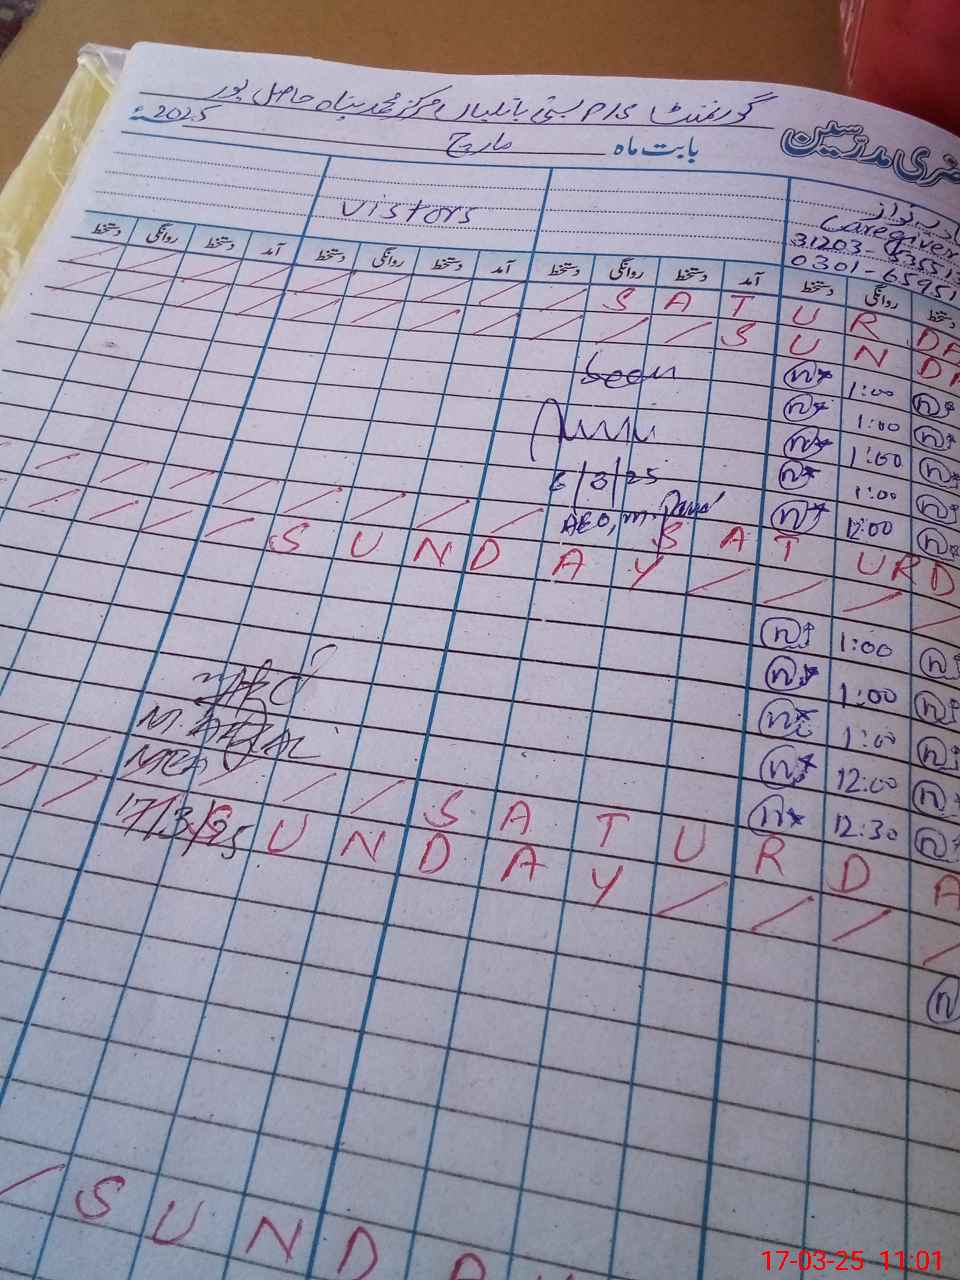 گورنمنٹ P/S بستی مرکز محمد پناہ حاصل پور
حاضری مدرسین
بابت ماہ مارچ 2025ء
Vistors
Caregiver
31203
0301-65951
آمد دستخط روانگی دستخط آمد دستخط روانگی دستخط آمد دستخط روانگی دستخط
S A T U R D A
S U N D A
Seen
1:00
1:00
1:00
6/3/25
1:00
AEO, M.
12:00
S A T U R D
S U N D A Y
1:00
1:00
1:00
12:00
M. AFZAL
MEA
12:30
17/3/25
S A T U R D A
S U N D A Y
S U N D A Y
17-03-25 11:01